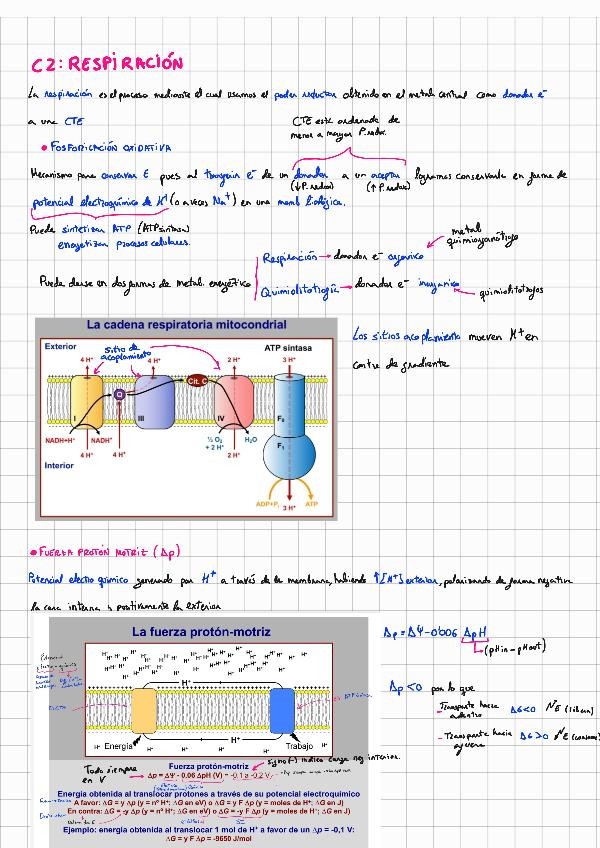 C2: RESPIRACIÓN
La respiración es el proceso mediante el cual usamos el poder reductor obtenido en el metab central como donador e-
a una CTE
CTE está ordenada de
menor a mayor P.redox.
• FOSFORILACIÓN OXIDATIVA
Mecanismo para conservar E pues al transferir e- de un donador a un aceptor logramos conservarla en forma de
(↓P.redox) (↑P.redox)
potencial electroquímico de H+ (o a veces Na+) en una memb biológica.
Puede sintetizar ATP (ATP sintasa)
energetizar procesos celulares.
metab
quimiorganotrofo
Respiración → donador e- orgánico
Puede darse en dos formas de metab. energético
Quimiolitotrofia → donador e- inorgánico
quimiolitotrofos
La cadena respiratoria mitocondrial
Exterior
sitio de
acoplamiento
ATP sintasa
4 H+ 4 H+ 2 H+ 3 H+
Q Cit. C
I III IV F0
F1
NADH+H+ NADH+ ½ O2 + 2 H+ H2O
4 H+ 4 H+ 2 H+
Interior
ADP+Pi 3 H+ ATP
Los sitios acoplamiento mueven H+ en
contra de gradiente
• FUERZA PROTÓN MOTRIZ (Δp)
Potencial electroquímico generado por H+ a través de la membrana, habiendo ↑[H+] exterior, polarizando de forma negativa
la cara interna y positivamente la exterior
La fuerza protón-motriz
H+ H+ H+ H+
H+
H+
Energía Trabajo
Δp = ΔΨ - 0,06 ΔpH
(pHin - pHout)
Δp < 0 por lo que
Transporte hacia
adentro ΔG<0
Transporte hacia
afuera ΔG>0
Todo siempre
en V
signo(-) indica carga neg interior.
Fuerza protón-motriz
Δp = ΔΨ - 0,06 ΔpH (V) = -0,1 a -0,2 V
Energía obtenida al translocar protones a través de su potencial electroquímico
A favor: ΔG = y Δp (y = nº H+; ΔG en eV) o ΔG = y F Δp (y = moles de H+; ΔG en J)
En contra: ΔG = -y Δp (y = nº H+; ΔG en eV) o ΔG = -y F Δp (y = moles de H+; ΔG en J)
Ejemplo: energía obtenida al translocar 1 mol de H+ a favor de un Δp = -0,1 V:
ΔG = y F Δp = -9650 J/mol